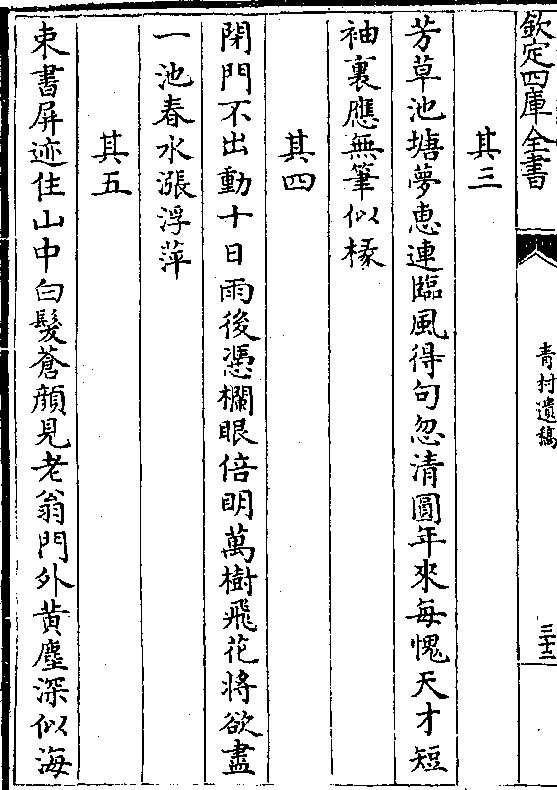 欽定四庫全書
青村遺稿
三十二
其三
芳草池塘夢惠連臨風得句忽清圓年來每愧天才短
袖裏應無筆似椽
其四
閉門不出動十日雨後憑欄眼倍明萬樹飛花將欲盡
一池春水漲浮萍
其五
束書屏迹住山中白髮蒼顔見老翁門外黄塵深似海